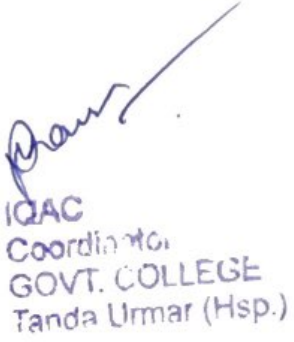 IQAC
Coordinator
GOVT. COLLEGE
Tanda Urmar (Hsp.)